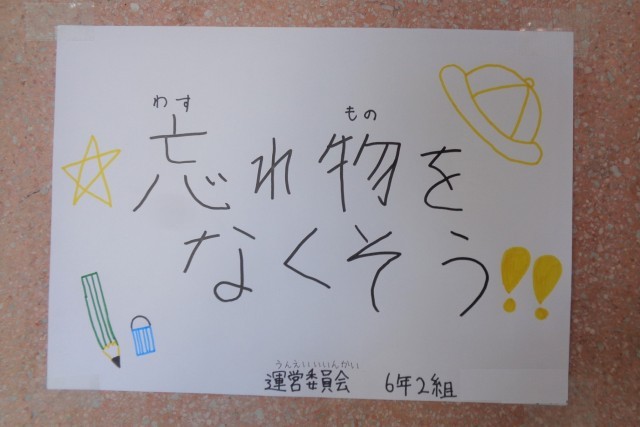 わす もの
忘れ物を
なくそう!!
うんえいいいんかい
運営委員会 6年2組